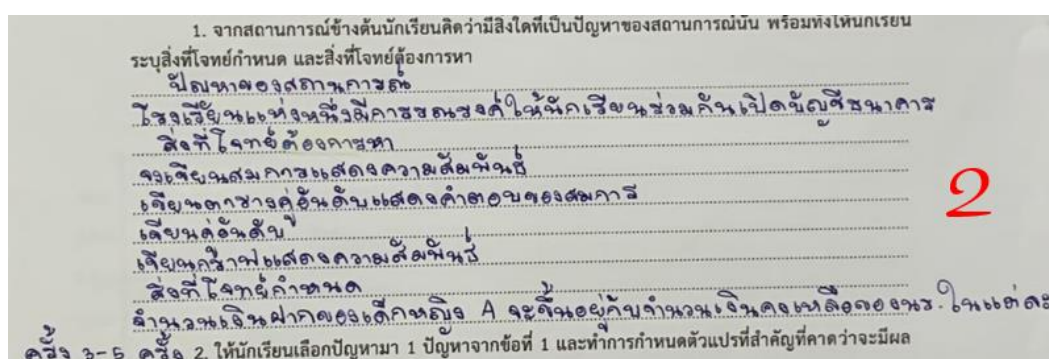 1. จากสถานการณ์ข้างต้นนักเรียนคิดว่ามีสิ่งใดที่เป็นปัญหาของสถานการณ์นั้น พร้อมทั้งให้นักเรียน
ระบุสิ่งที่โจทย์กำหนด และสิ่งที่โจทย์ต้องการหา
ปัญหาของสถานการณ์
โรงเรียนแห่งหนึ่งมีการรณรงค์ให้นักเรียนร่วมกันเปิดบัญชีธนาคาร
สิ่งที่โจทย์ต้องการหา
จงเขียนสมการแสดงความสัมพันธ์
เขียนตารางคู่อันดับแสดงคำตอบของสมการ
เขียนคู่อันดับ
เขียนกราฟแสดงความสัมพันธ์
2
สิ่งที่โจทย์กำหนด
จำนวนเงินฝากของเด็กหญิง A จะขึ้นอยู่กับจำนวนเงินคงเหลือของนร. ในแต่ละ
ครั้ง 3-5 ครั้ง 2. ให้นักเรียนเลือกปัญหามา 1 ปัญหาจากข้อที่ 1 และทำการกำหนดตัวแปรที่สำคัญที่คาดว่าจะมีผล